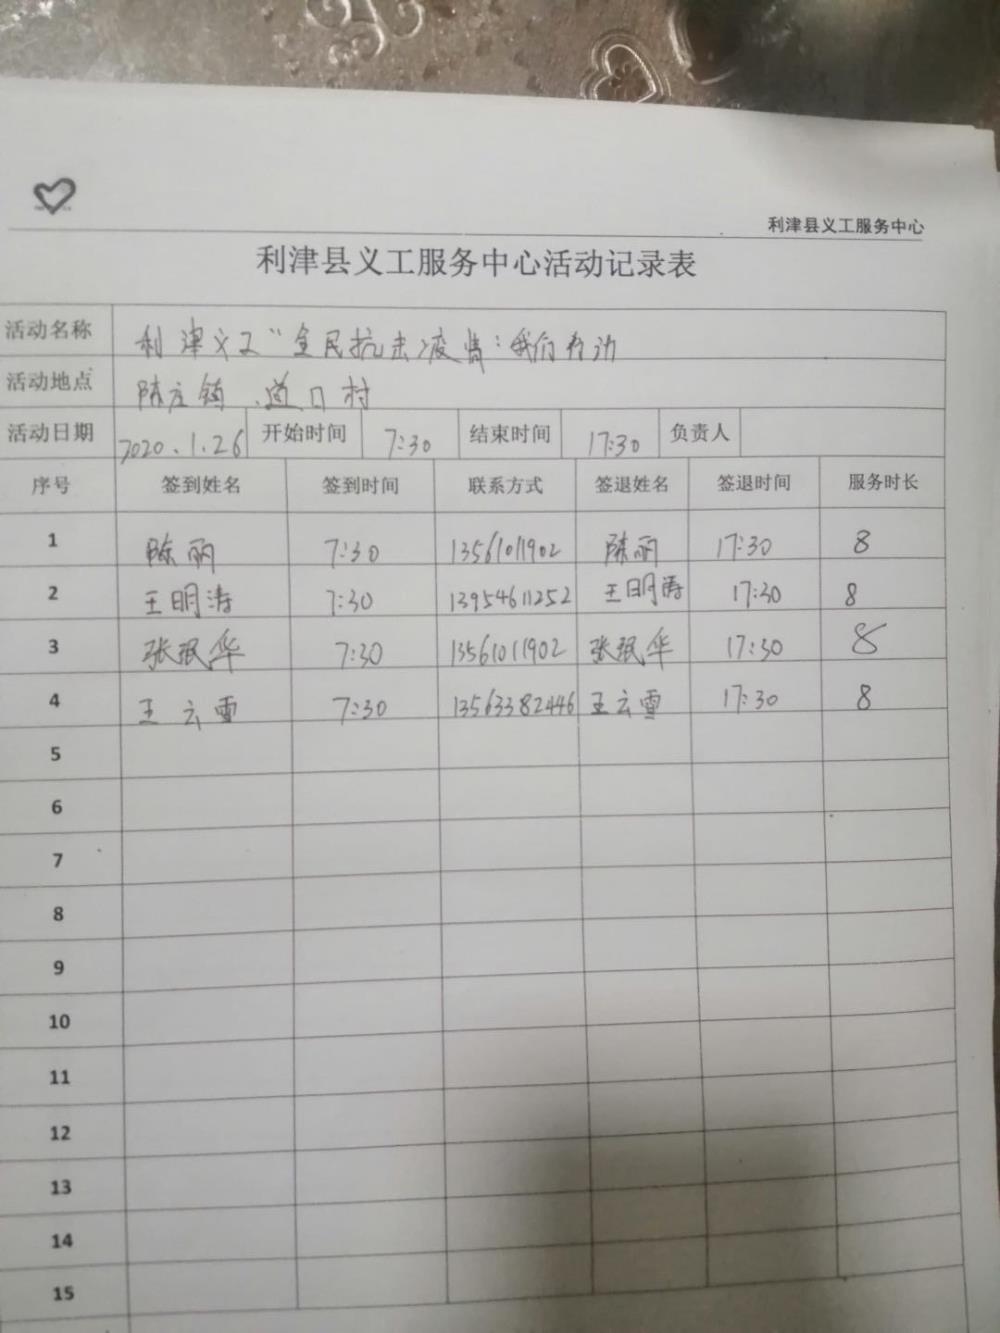 利津县义工服务中心
利津县义工服务中心活动记录表
活动名称 利津义工"全民抗击疫情:我们在行动
活动地点 陈庄镇、道口村
活动日期 2020.1.26 开始时间 7:30 结束时间 17:30 负责人
序号 签到姓名 签到时间 联系方式 签退姓名 签退时间 服务时长
1 陈丽 7:30 13561011902 陈丽 17:30 8
2 王明涛 7:30 13954611252 王明涛 17:30 8
3 张珉华 7:30 13561011902 张珉华 17:30 8
4 王云雪 7:30 13563382446 王云雪 17:30 8
5
6
7
8
9
10
11
12
13
14
15